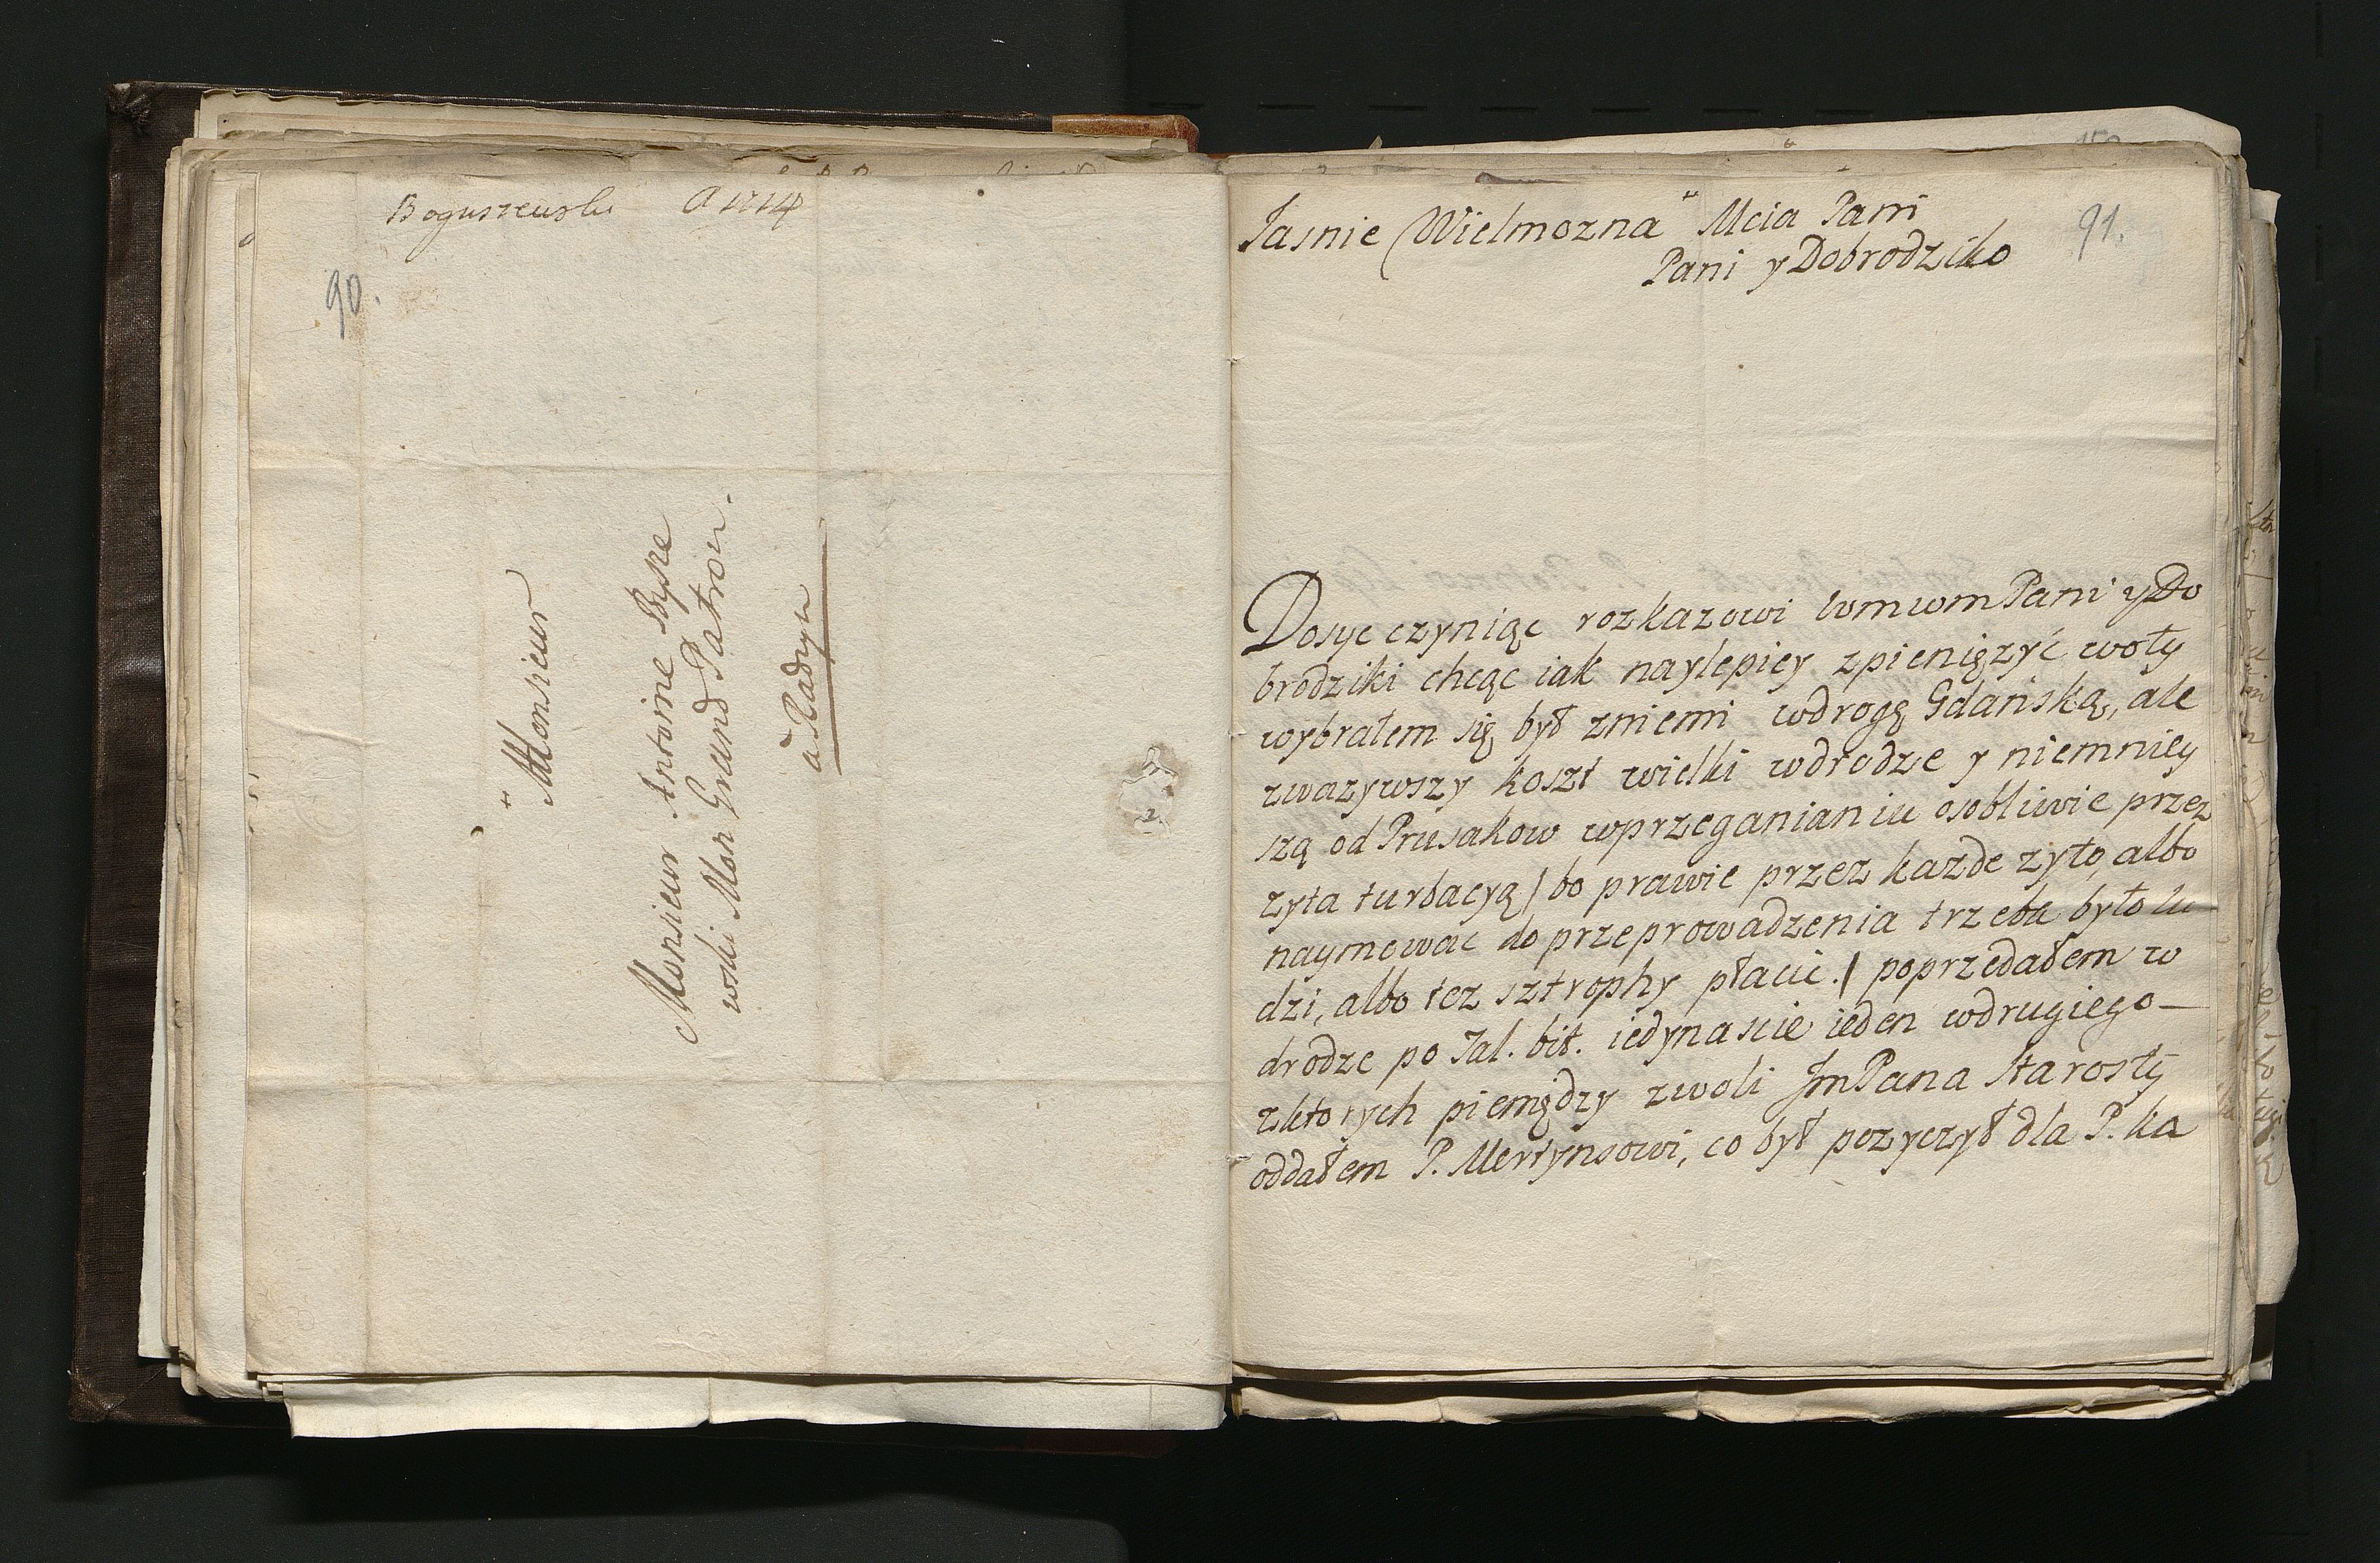 Boguszewski A 1714
90.
Monsieur
Monsieur Antoine Bysze
wski Mon Grand Patron.
à Radzyn
91.
Jasnie Wielmozna Mcia Pani
Pani y Dobrodziko
Dosyc czyniąc rozkazowi wmwmPani y Do
brodziki chcąc iak naylepiey zpienięzyć woły
wybrałem się był zniemi wdrogę Gdańską, ale
zwazywszy koszt wielki wdrodze y niemniey
szą od Prusakow wprzeganianiu osobliwie przez
zyta turbacyą/ bo prawie przez kazde zyto, albo
naymować do przeprowadzenia trzeba było lu
dzi, albo tez sztrophy płacic./ poprzedałem w
drodze po Tal. bit. iedynascie ieden wdrugiego
zktorych pieniędzy zwoli JmPana Starosty
oddałem P. Mertynsowi, co był pozyczył dla P. ka